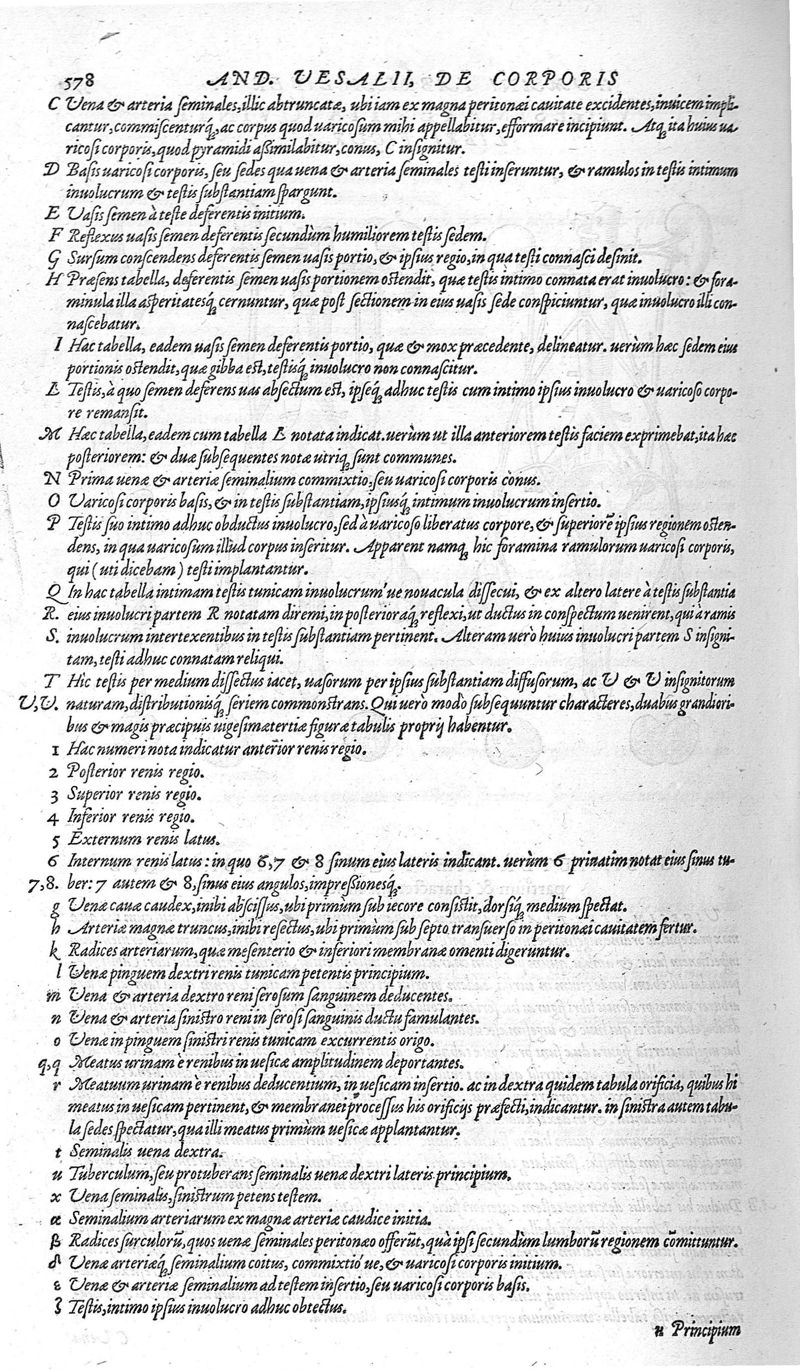 578 AND. VESALII, DE CORPORIS
C Uena & arteria seminales, illic abtruncatæ, ubi iam ex magna peritonæi cauitate excidentes, inuicem impli-
cantur, commiscenturq́;, ac corpus quod uaricosum mihi appellabitur, efformare incipiunt. Atq; ita huius ua-
ricosi corporis, quod pyramidi assimilabitur, conus, C insignitur.
D Basis uaricosi corporis, seu sedes qua uena & arteria seminales testi inseruntur, & ramulos in testis intimum
inuolucrum & testis substantiam spargunt.
E Uasis semen à teste deferentis initium.
F Reflexus uasis semen deferentis secundùm humiliorem testis sedem.
G Sursum conscendens deferentis semen uasis portio, & ipsius regio, in qua testi connasci desinit.
H Præsens tabella, deferentis semen uasis portionem ostendit, quæ testis intimo connata erat inuolucro: & fora-
minula illa asperitatesq́; cernuntur, quæ post sectionem in eius uasis sede conspiciuntur, quæ inuolucro illi con-
nascebatur.
I Hac tabella, eadem uasis semen deferentis portio, quæ & mox præcedente, delineatur. uerùm hæc sedem eius
portionis ostendit, quæ gibba est, testisq́; inuolucro non connascitur.
L Testis, à quo semen deferens uas absectum est, ipseq́; adhuc testis cum intimo ipsius inuolucro & uaricoso corpo-
re remansit.
M Hæc tabella, eadem cum tabella L notata indicat. uerùm ut illa anteriorem testis faciem exprimebat, ita hæc
posteriorem: & duæ subsequentes notæ utriq; sunt communes.
N Prima uenæ & arteriæ seminalium commixtio, seu uaricosi corporis cònus.
O Uaricosi corporis basis, & in testis substantiam, ipsiusq́; intimum inuolucrum insertio.
P Testis suo intimo adhuc obductus inuolucro, sed à uaricoso liberatus corpore, & superiorẽ ipsius regionem osten-
dens, in qua uaricosum illud corpus inseritur. Apparent namq; hic foramina ramulorum uaricosi corporis,
qui (uti dicebam) testi implantantur.
Q In hac tabella intimam testis tunicam inuolucrum'ue nouacula dissecui, & ex altero latere à testis substantia
R. eius inuolucri partem R notatam diremi, in posterioraq́; reflexi, ut ductus in conspectum uenirent, qui à ramis
S. inuolucrum intertexentibus in testis substantiam pertinent. Alteram uerò huius inuolucri partem S insigni-
tam, testi adhuc connatam reliqui.
T Hic testis per medium dissectus iacet, uasorum per ipsius substantiam diffusorum, ac V & V insignitorum
V,V. naturam, distributionisq́; seriem commonstrans. Qui uerò modò subsequuntur characteres, duabus grandiori-
bus & magis præcipuis uigesimætertiæ figuræ tabulis proprij habentur.
1 Hac numeri nota indicatur anterior renis regio.
2 Posterior renis regio.
3 Superior renis regio.
4 Inferior renis regio.
5 Externum renis latus.
6 Internum renis latus: in quo 6,7 & 8 sinum eius lateris indicant. uerùm 6 priuatim notat eius sinus tu-
7,8. ber: 7 autem & 8, sinus eius angulos, impressionesq́;.
g Uenæ cauæ caudex, inibi abscissus, ubi primùm sub iecore consistit, dorsiq́; medium spectat.
h Arteriæ magnæ truncus, inibi resectus, ubi primùm sub septo transuerso in peritonæi cauitatem fertur.
k Radices arteriarum, quæ mesenterio & inferiori membranæ omenti digeruntur.
l Uenæ pinguem dextri renis tunicam petentis principium.
m Uena & arteria dextro reni serosum sanguinem deducentes.
n Uena & arteria sinistro reni in serosi sanguinis ductu famulantes.
o Uenæ in pinguem sinistri renis tunicam excurrentis origo.
q,q Meatus urinam è renibus in uesicæ amplitudinem deportantes.
r Meatuum urinam è renibus deducentium, in uesicam insertio. ac in dextra quidem tabula orificia, quibus hi
meatus in uesicam pertinent, & membranei processus his orificijs præfecti, indicantur. in sinistra autem tabu-
la sedes spectatur, qua illi meatus primùm uesicæ applantantur.
t Seminalis uena dextra.
u Tuberculum, seu protuberans seminalis uenæ dextri lateris principium.
x Uena seminalis, sinistrum petens testem.
α Seminalium arteriarum ex magnæ arteriæ caudice initia.
β Radices surculorũ, quos uenæ seminales peritonæo offerũt, quà ipsi secundùm lumborũ regionem cõmittuntur.
δ Uenæ arteriæq́; seminalium coitus, commixtió'ue, & uaricosi corporis initium.
ε Uenæ & arteriæ seminalium ad testem insertio, seu uaricosi corporis basis.
ζ Testis, intimo ipsius inuolucro adhuc obtectus.
κ Principium